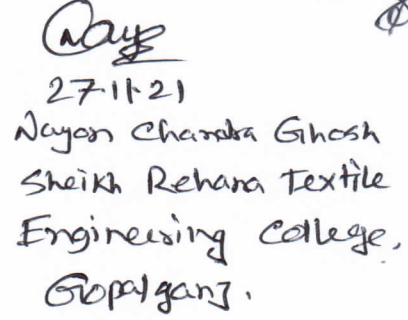 27.11.21
Nayon Chandra Ghosh
Sheikh Rehana Textile
Engineering College,
Gopalganj.